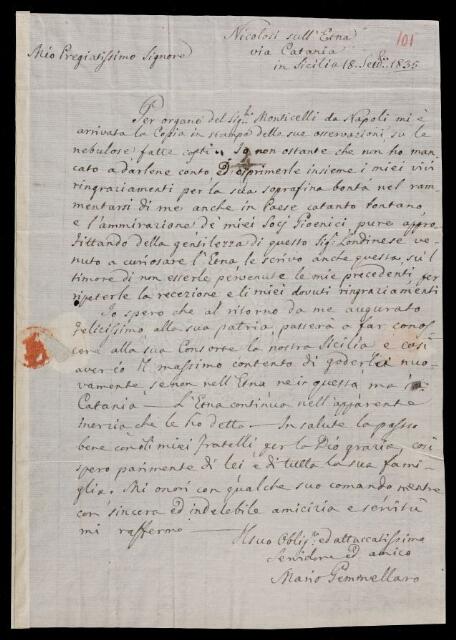 Nicolosi sull'Etna
101
via Catania
in Sicilia 18. Sett. 1835
Mio Pregiatissimo Signore
Per organo del Sig. Monticelli da Napoli mi è
arrivata la Copia in stampa delle sue osservazioni su le
nebulose fatte costì. Io non ostante che non ho man
cato a darlene conto Di esprimerle insieme i miei vivi
ringraziamenti per la sua soprafina bontà nel ram-
mentarsi di me anche in Paese cotanto lontano
e l'ammirazione de' miei Socj Gioenici, pure appro
fittando della gentilezza di questo Sig. Londinese ve-
nuto a curiosare l'Etna le scrivo anche questa, sul
timore di non esserle pervenute le mie precedenti per
ripeterle la recezione e li miei dovuti ringraziamenti
Io spero che al ritorno da me augurato
felicissimo alla sua patria, passerà a far conos
cere alla sua Consorte la nostra Sicilia e così
averò il massimo contento di goderlei nuo-
vamente, se non nell'Etna ne in questa ma in
Catania — L'Etna continua nell'apparente
inerzia che le ho detta — In salute la passo
bene con di miei fratelli per la Dio grazia, così
spero parimente di lei e di tutta la sua fami-
glia. Mi onori con qualche suo comando mentre
con sincera ed indelebile amicizia e servitù
mi raffermo —
Il suo Oblig. ed attaccatissimo
Servidore ed amico
Mario Gemmellaro